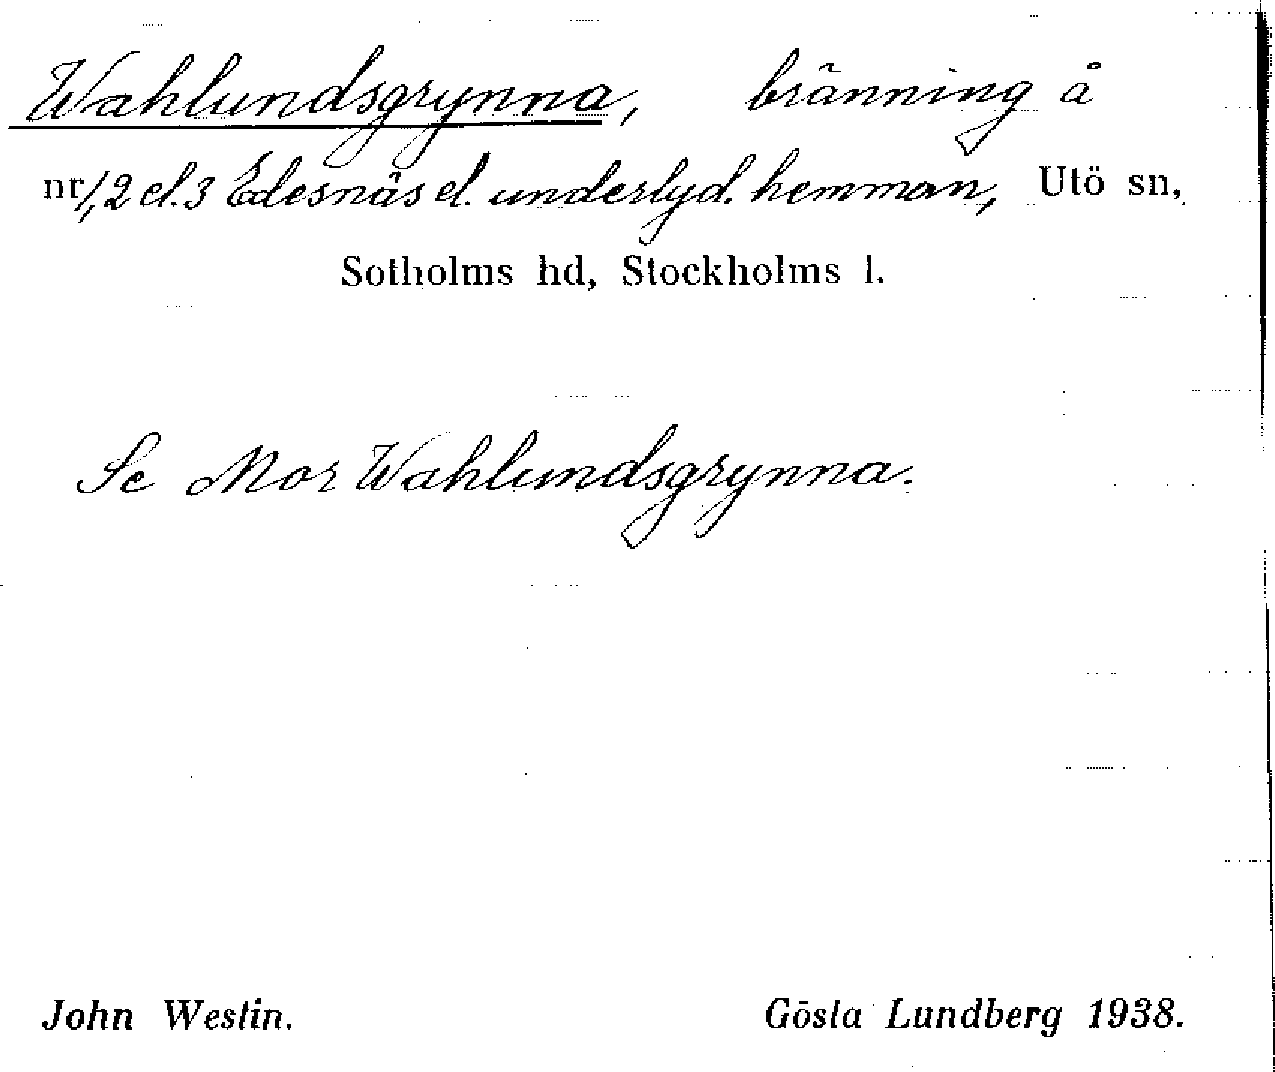 Wahlundsgrynna, bränning å
nr 1, 2 el. 3 Edesnäs el. underlyd. hemman, Utö sn,
Sotholms hd, Stockholms l.
Se Mor Wahlundsgrynna.
John Westin. Gösta Lundberg 1938.